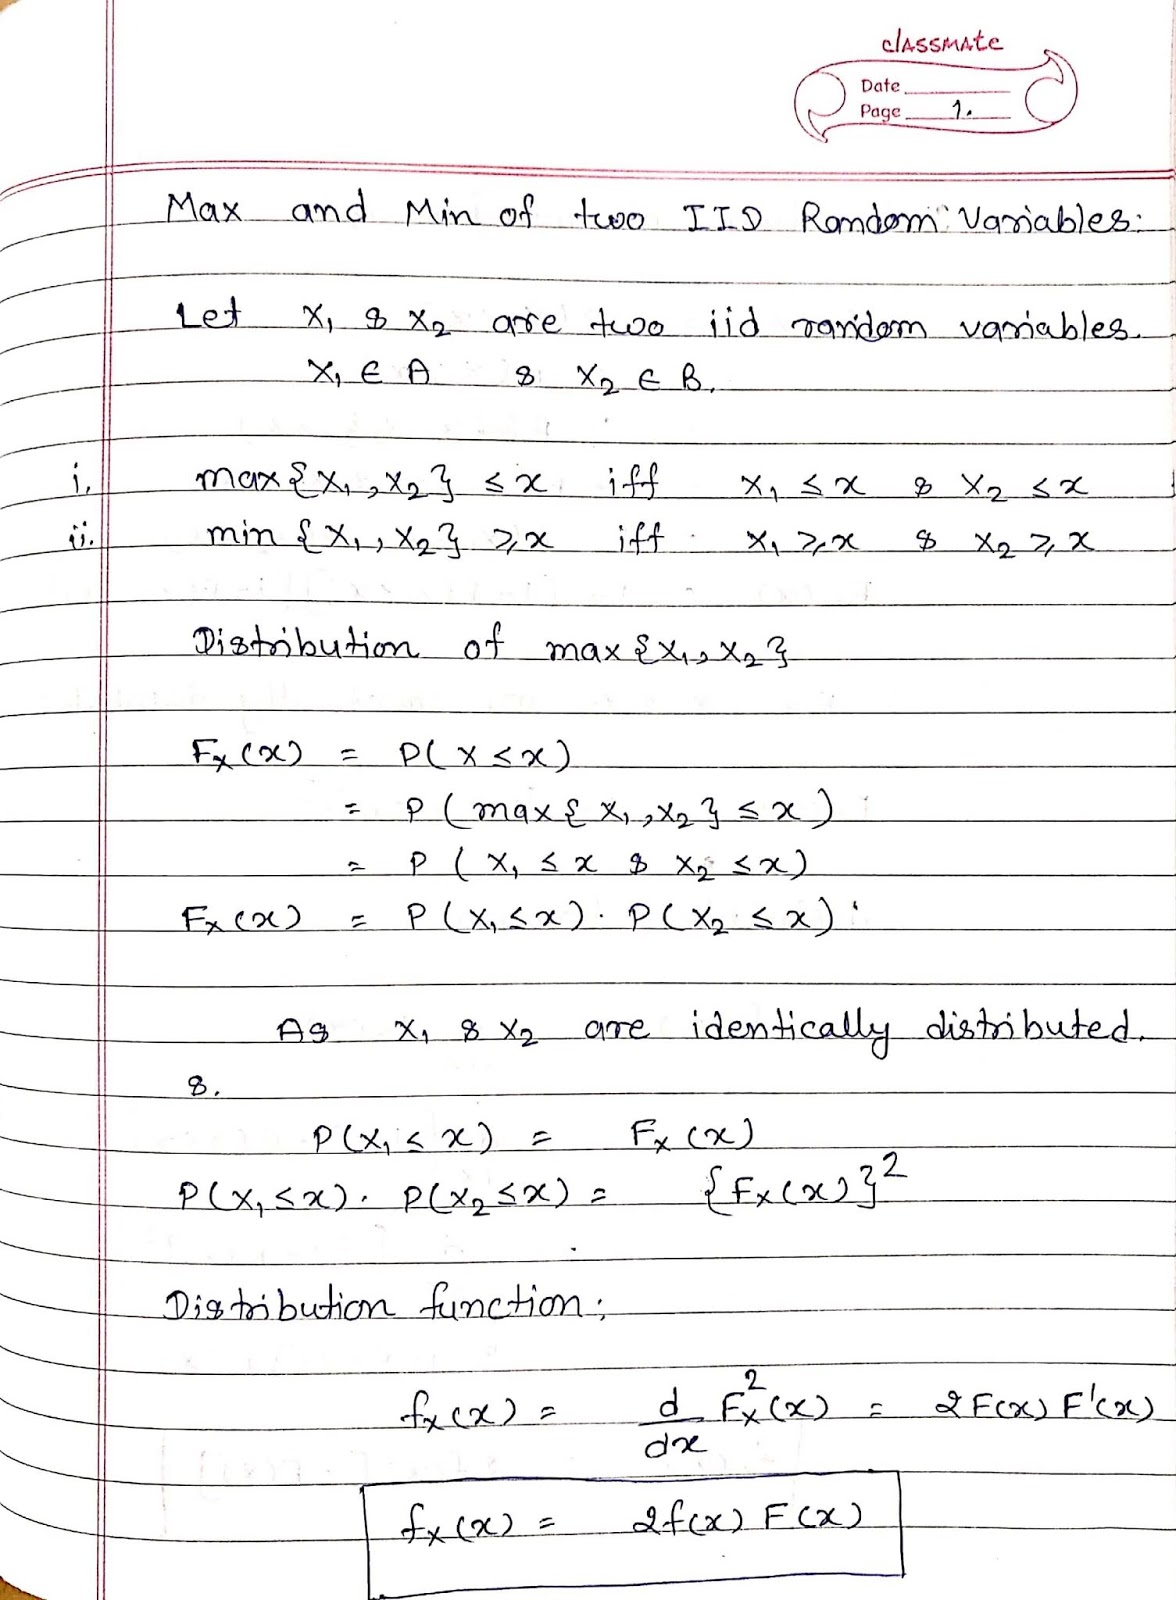 classmate
Date
Page 1.
Max and Min of two IID Random Variables:
Let X₁ & X₂ are two iid random variables.
X₁ ∈ A & X₂ ∈ B.
i. max{X₁, X₂} ≤ x iff X₁ ≤ x & X₂ ≤ x
ii. min {X₁, X₂} ≥ x iff X₁ ≥ x & X₂ ≥ x
Distribution of max{X₁, X₂}
Fₓ(x) = P(X ≤ x)
= P(max{X₁, X₂} ≤ x)
= P(X₁ ≤ x & X₂ ≤ x)
Fₓ(x) = P(X₁ ≤ x) . P(X₂ ≤ x)
As X₁ & X₂ are identically distributed.
&.
P(X₁ ≤ x) = Fₓ(x)
P(X₁ ≤ x) . P(X₂ ≤ x) = {Fₓ(x)}²
Distribution function:
fₓ(x) = d/dx Fₓ²(x) = 2F(x) F'(x)
fₓ(x) = 2f(x) F(x)